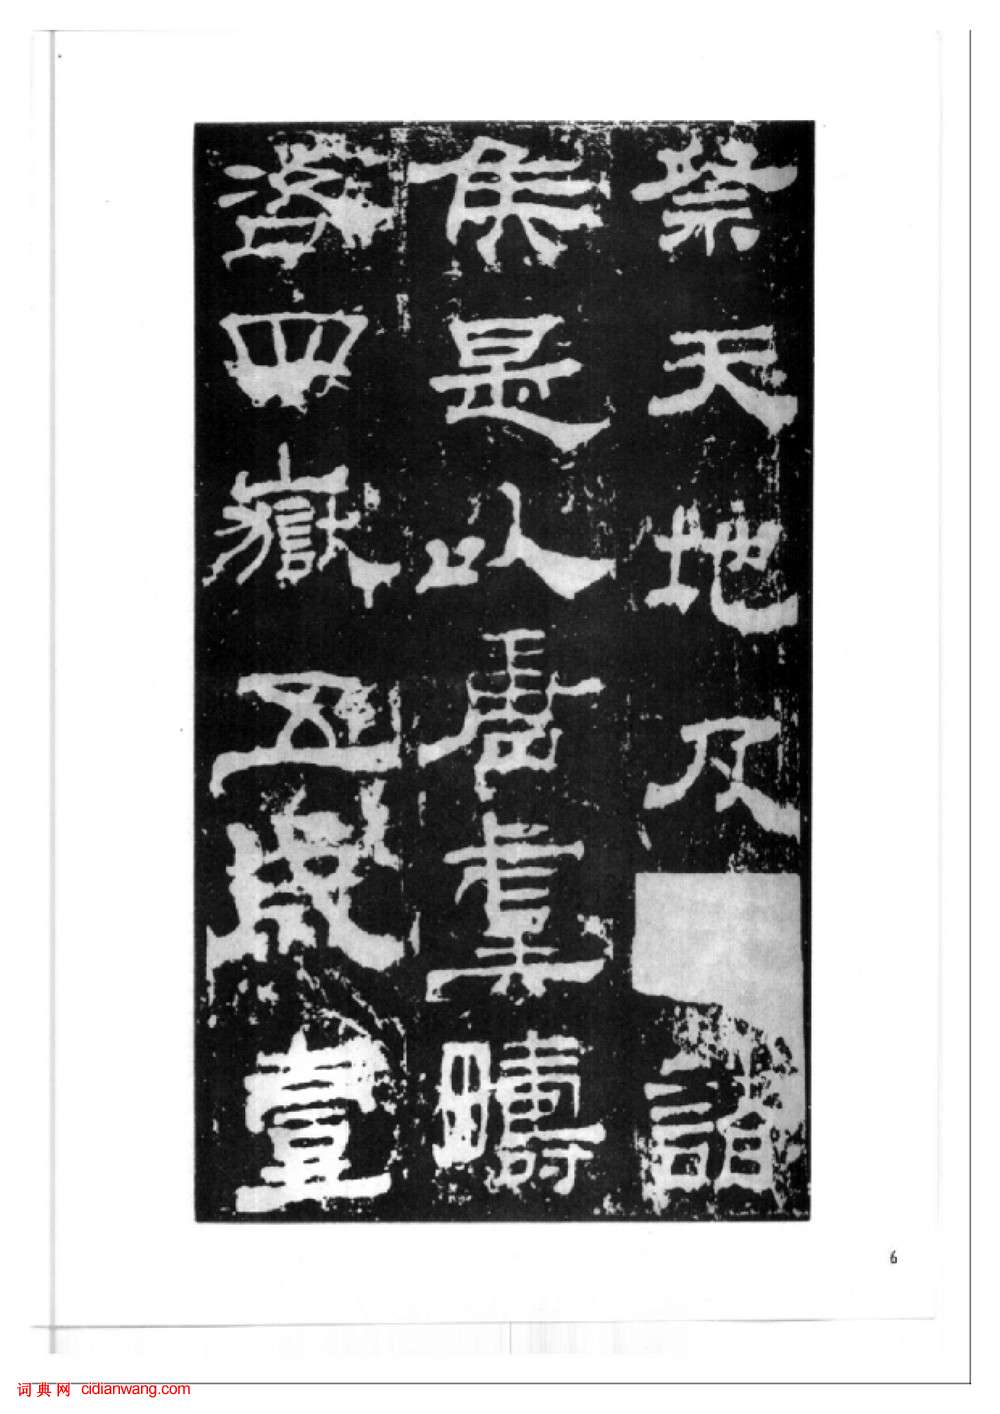 祭天地及諸
侯是以唐虞疇
咨四嶽五歲壹
6
词典网 cidianwang.com